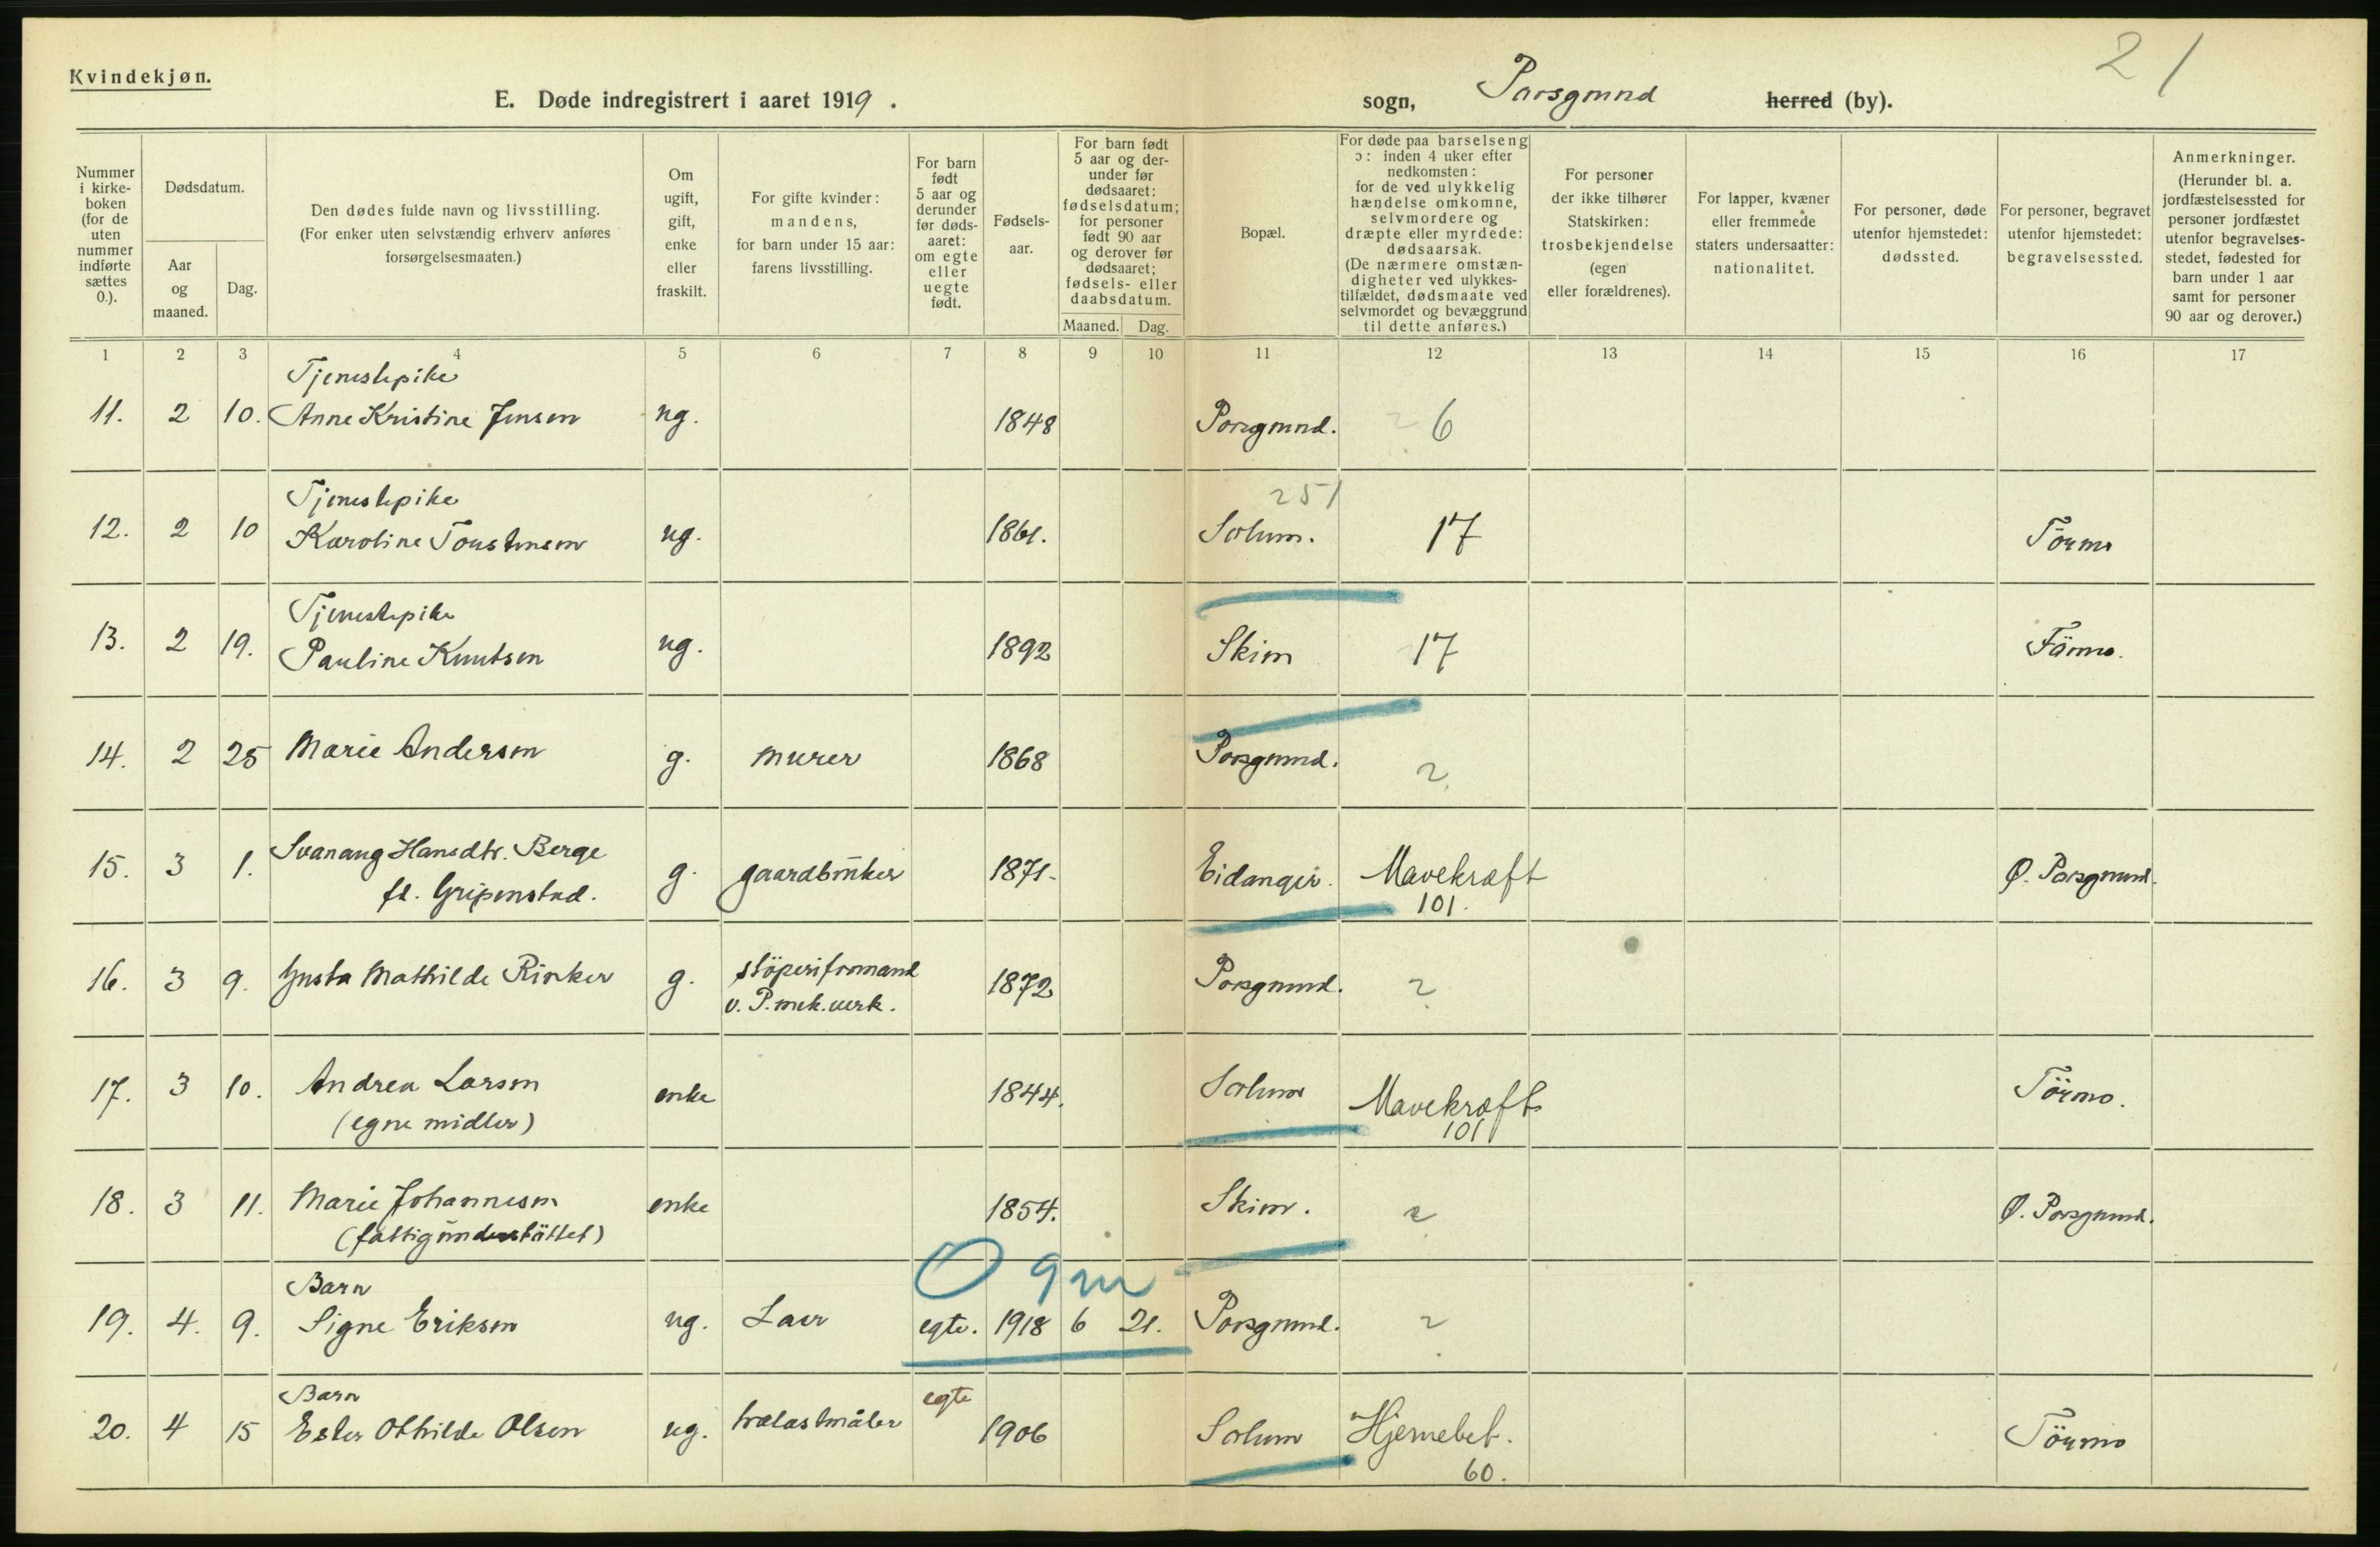 21
Kvindekjøn.
E. Døde indregistrert i aaret 1919. sogn, Porsgrund herred (by).
Nummer i kirkeboken (for de uten nummer indførte sættes 0.).
Dødsdatum.
Aar og maaned.
Dag.
Den dødes fulde navn og livsstilling.
(For enker uten selvstændig erhverv anføres forsørgelsesmaaten.)
Om ugift, gift, enke eller fraskilt.
For gifte kvinder: mandens, for barn under 15 aar: farens livsstilling.
For barn født 5 aar og derunder før dødsaaret: om egte eller uegte født.
Fødselsaar.
For barn født 5 aar og derunder før dødsaaret: fødselsdatum; for personer født 90 aar og derover før dødsaaret; fødsels- eller daabsdatum.
Maaned.
Dag.
Bopæl.
For døde paa barselseng ɔ: inden 4 uker efter nedkomsten: for de ved ulykkelig hændelse omkomne, selvmordere og dræpte eller myrdede: dødsaarsak.
(De nærmere omstændigheter ved ulykkestilfældet, dødsmaate ved selvmordet og bevæggrund til dette anføres.)
For personer der ikke tilhører Statskirken: trosbekjendelse (egen eller forældrenes).
For lapper, kvæner eller fremmede staters undersaatter: nationalitet.
For personer, døde utenfor hjemstedet: dødssted.
For personer, begravet utenfor hjemstedet: begravelsessted.
Anmerkninger.
(Herunder bl. a. jordfæstelsessted for personer jordfæstet utenfor begravelsesstedet, fødested for barn under 1 aar samt for personer 90 aar og derover.)
1 2 3 4 5 6 7 8 9 10 11 12 13 14 15 16 17
Tjenestepike
11. 2 10. Anne Kristine Jensen ug. 1848 Porsgrund. 6
Tjenestepike 251
12. 2 10 Karoline Torstensen ug. 1861. Solum. 17
Tjenestepike
13. 2 19. Pauline Knutsen ug. 1892 Skien 17
14. 2 25 Marie Andersen g. murer 1868 Porsgrund. ?
15. 3 1. Svanaug Hansdtr. Berge g. gaardbruker 1871. Eidanger. Mavekræft Ø. Porsgrund.
fl. Gripenstad. 101.
16. 3 9. Gusta Mathilde Rinker g. støperiformand 1872 Porsgrund. ?
v. P. mek. verk.
17. 3 10. Andrea Larsen enke 1844. Solum Mavekræft
(egne midler) 101
18. 3 11. Marie Johannesen enke 1854. Skien. ? Ø. Porsgrund.
(fattigunderstøttet)
0 9 m
Barn
19. 4. 9. Signe Eriksen ug. egte. 1918 6 21. Porsgrund. ?
Barn egte
20. 4 15 Ester Othilde Olsen ug. trælastmåler 1906 Solum Hjernebet.
60.